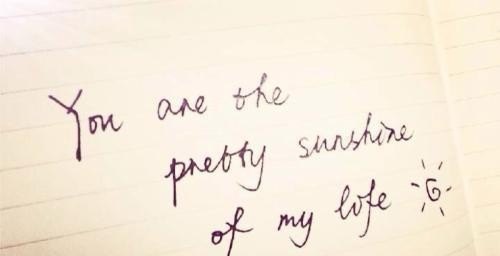 You are the
pretty sunshine
of my life